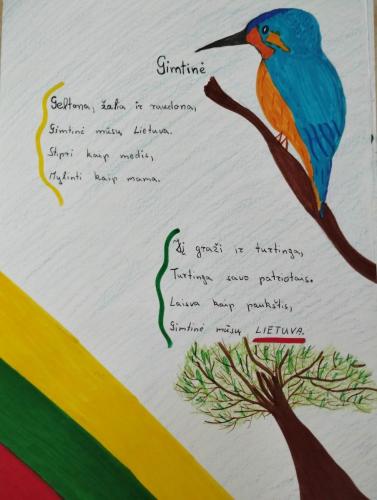 Gimtinė
Geltona, žalia ir raudona,
Gimtinė mūsų Lietuva.
Stipri kaip medis,
Mylinti kaip mama.
Ji graži ir turtinga,
Turtinga savo patriotais.
Laisva kaip paukštis,
Gimtinė mūsų LIETUVA.